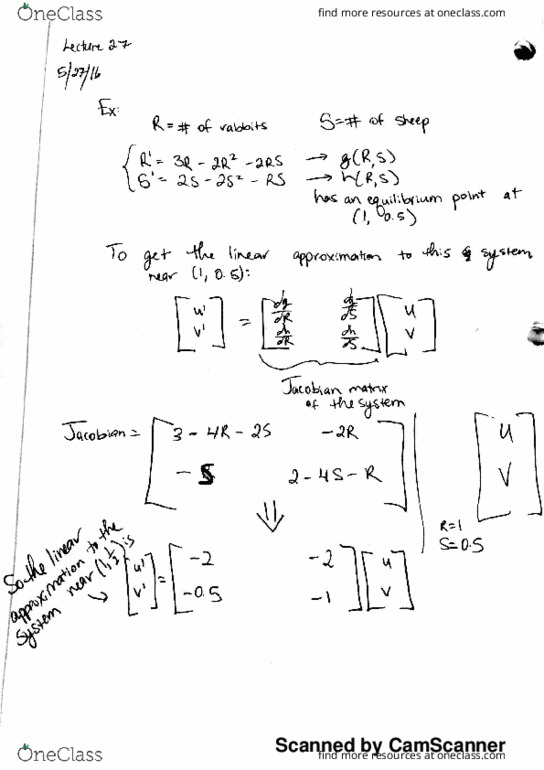 OneClass find more resources at oneclass.com
Lecture 27
5/27/16
Ex:
R = # of rabbits S = # of sheep
R' = 3R - 2R² - 2RS → g(R,S)
S' = 2S - 2S² - RS → h(R,S)
has an equilibrium point at
(1, 0.5)
To get the linear approximation to this system
near (1, 0.5):
[u' v'] = [dg/dR dg/dS dh/dR dh/dS] [u v]
Jacobian matrix
of the system
Jacobian = [3 - 4R - 2S -2R
-S 2 - 4S - R] | [u v]
R=1
S=0.5
⇓
So the linear
approximation to the
system near (1, 1/2) is
→ [u' v'] = [-2 -2
-0.5 -1] [u v]
Scanned by CamScanner
OneClass find more resources at oneclass.com